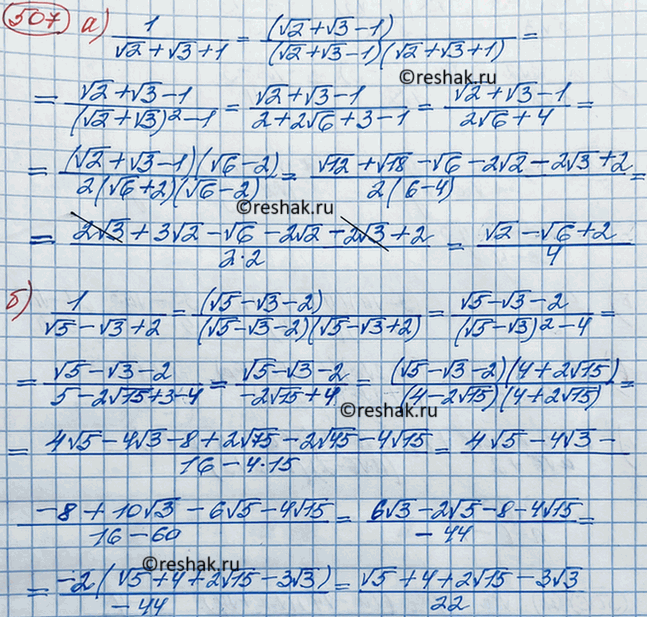 507 а) 1/(√2+√3+1) = (√2+√3-1)/((√2+√3-1)(√2+√3+1)) =
©reshak.ru
= (√2+√3-1)/((√2+√3)²-1) = (√2+√3-1)/(2+2√6+3-1) = (√2+√3-1)/(2√6+4) =
= ((√2+√3-1)(√6-2))/(2(√6+2)(√6-2)) = (√12+√18-√6-2√2-2√3+2)/(2(6-4)) =
©reshak.ru
= (2√3+3√2-√6-2√2-2√3+2)/(2·2) = (√2-√6+2)/4
б) 1/(√5-√3+2) = (√5-√3-2)/((√5-√3-2)(√5-√3+2)) = (√5-√3-2)/((√5-√3)²-4) =
= (√5-√3-2)/(5-2√15+3-4) = (√5-√3-2)/(-2√15+4) = ((√5-√3-2)(4+2√15))/((4-2√15)(4+2√15)) =
©reshak.ru
= (4√5-4√3-8+2√75-2√45-4√15)/(16-4·15) = 4√5-4√3-
-8+10√3-6√5-4√15/(16-60) = (6√3-2√5-8-4√15)/(-44) =
©reshak.ru
= (-2(√5+4+2√15-3√3))/(-44) = (√5+4+2√15-3√3)/22